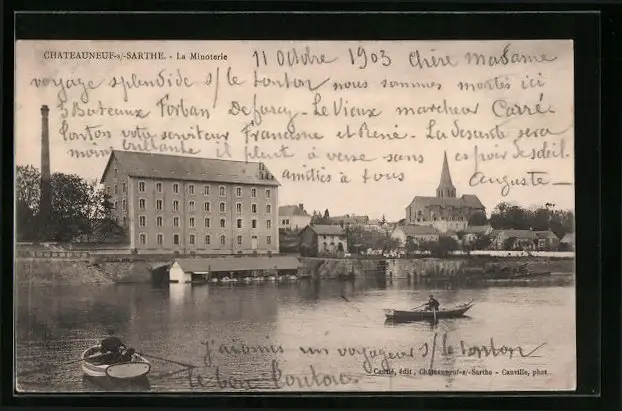 CHATEAUNEUF-s/-SARTHE. - La Minoterie
11 Octobre 1903 Chère Madame
voyage splendide s/ le tonton nous sommes montés ici
3 Bateaux Forban Deforcy - Le Vieux marcheur Carré
tonton votre serviteur Francasne et René - La descente sera
moins brillante il pleut à verse - sans espoir de soleil.
amitiés à tous
Auguste
J'avais un voyageur s/ le tonton
le bon tonton.
Cauville, phot.
édit, Châteauneuf-s/-Sarthe -